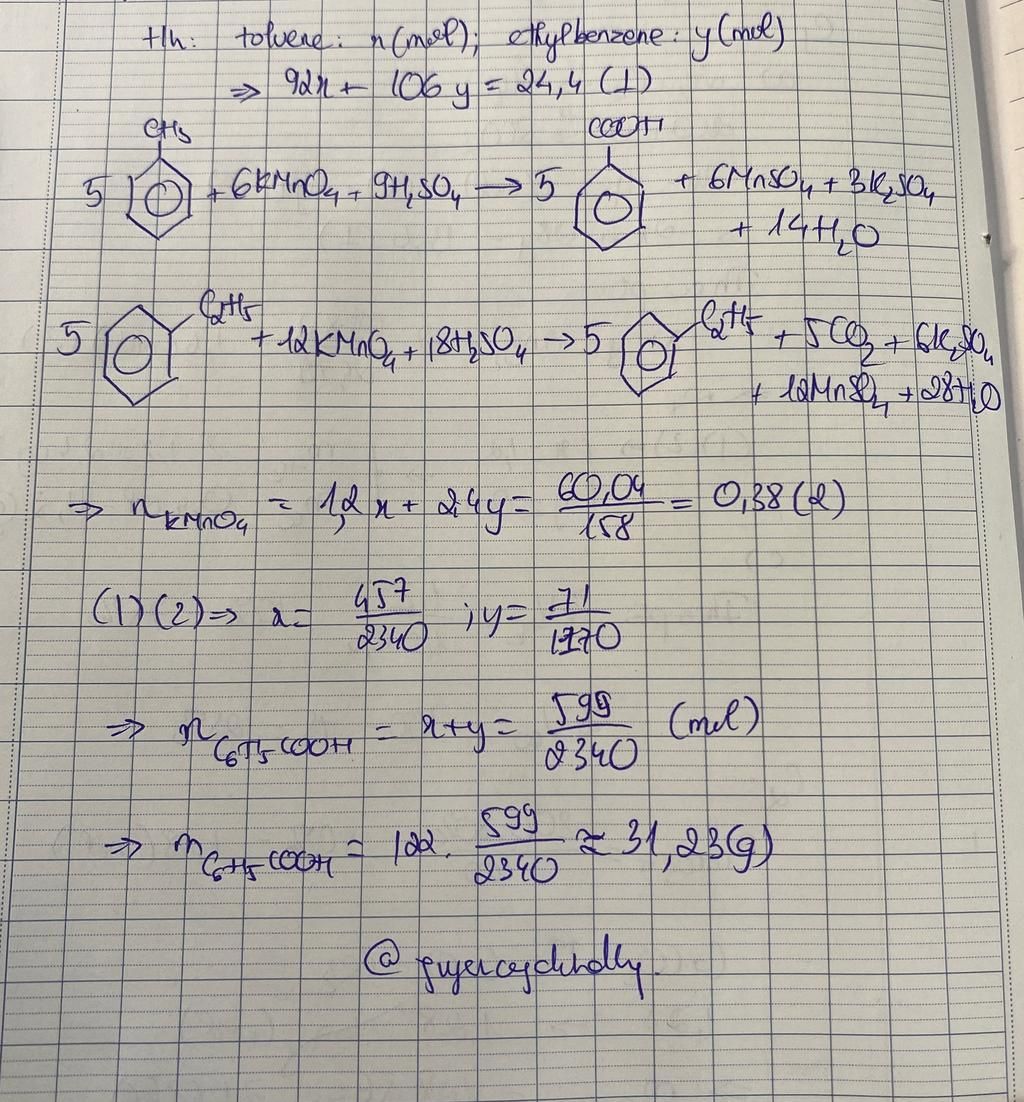 +) hh: toluene: x (mol); ethylbenzene: y (mol)
⇒ 92x + 106y = 24,4 (1)
CH3 COOH
5 + 6KMnO4 + 9H2SO4 → 5 + 6MnSO4 + 3K2SO4
+ 14H2O
C2H5 C2H5
5 + 12KMnO4 + 18H2SO4 → 5 + 5CO2 + 6K2SO4
+ 12MnSO4 + 28H2O
⇒ nKMnO4 = 1,2x + 2,4y = 60,04/158 = 0,38 (2)
(1)(2) ⇒ x = 457/2340 ; y = 71/1170
⇒ nC6H5COOH = x+y = 599/2340 (mol)
⇒ mC6H5COOH = 122. 599/2340 ≈ 31,23(g)